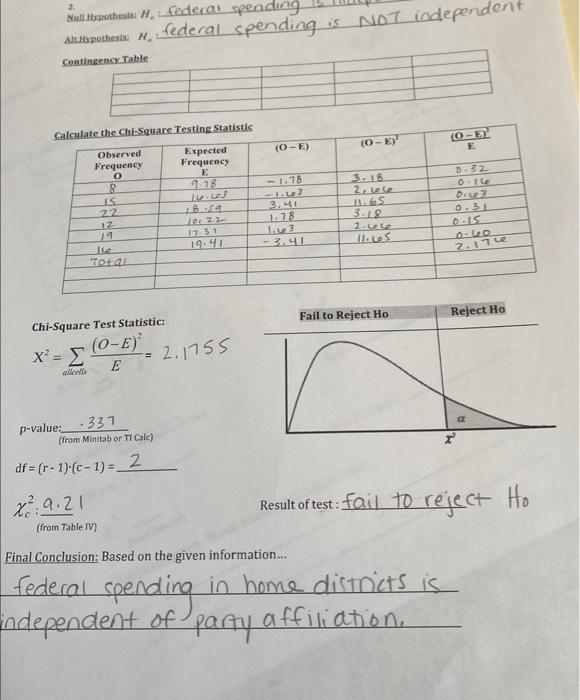 2.
Null Hypothesis: Hₒ: federal spending is
Alt.Hypothesis: Hₐ: federal spending is NOT independent
Contingency Table
Calculate the Chi-Square Testing Statistic
Observed Frequency O | Expected Frequency E | (O – E) | (O – E)² | (O – E)² / E
8 | 9.78 | – 1.78 | 3.18 | 0.32
15 | 16.63 | – 1.63 | 2.66 | 0.16
22 | 18.59 | 3.41 | 11.65 | 0.63
12 | 10.22 | 1.78 | 3.18 | 0.31
19 | 17.37 | 1.63 | 2.66 | 0.15
16 | 19.41 | – 3.41 | 11.65 | 0.60
Total | 2.176
Fail to Reject Ho
Reject Ho
Chi-Square Test Statistic:
X² = ∑ allcells (O–E)² / E = 2.1755
α
χ²
p-value: .337
(from Minitab or TI Calc)
df = (r - 1)·(c – 1) = 2
χ²c : 9.21
(from Table IV)
Result of test : fail to reject Ho
Final Conclusion: Based on the given information...
federal spending in home districts is
independent of party affiliation.